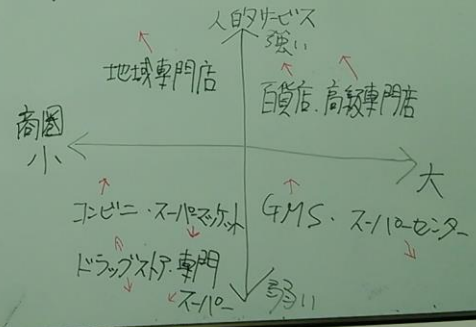 人的サービス
強い
地域専門店
百貨店、高級専門店
商圏
小
大
コンビニ・スーパーマーケット
GMS・スーパーセンター
ドラッグストア・専門
スーパー
弱い